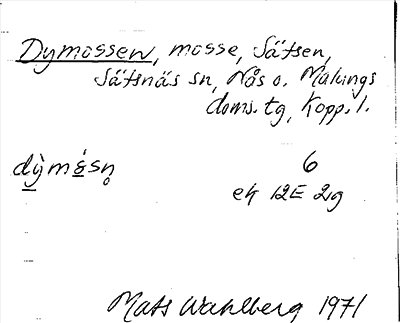 Dymossen, mosse, Sätsen,
Sätsnäs sn, Nås o. Malungs
doms. tg, Kopp. l.
dỳmósn̥ 6
ek 12E 2g
Mats Wahlberg 1971